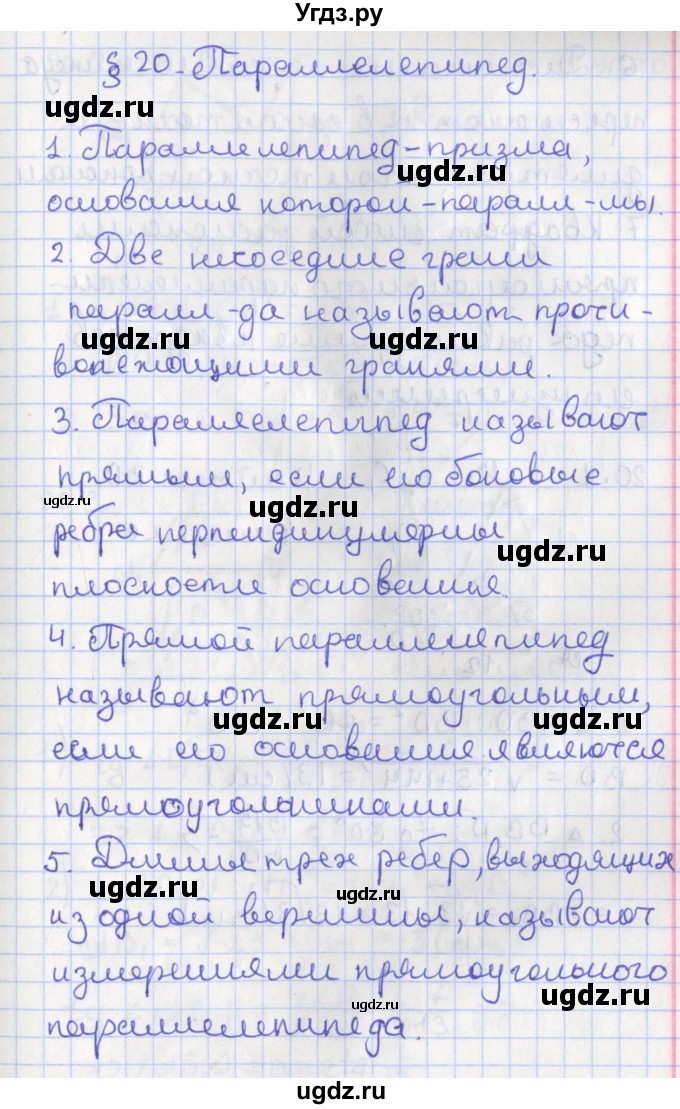 Угдз.ру
§ 20. Параллелепипед.
ugdz.ru
1. Параллелепипед - призма,
ugdz.ru
основания которой - паралл-мы.
2. Две несоседние грани
паралл-да называют проти-
ugdz.ru ugdz.ru
волежащими гранями.
3. Параллелепипед называют
прямым, если его боковые
ugdz.ru ugdz.ru
ребра перпендикулярны
ugdz.ru
плоскости основания.
4. Прямой параллелепипед
называют прямоугольным,
ugdz.ru ugdz.ru
если его основания являются
прямоугольниками.
5. Длины трех ребер, выходящих
ugdz.ru ugdz.ru
из одной вершины, называют
измерениями прямоугольного
ugdz.ru ugdz.ru
параллелепипеда.
ugdz.ru